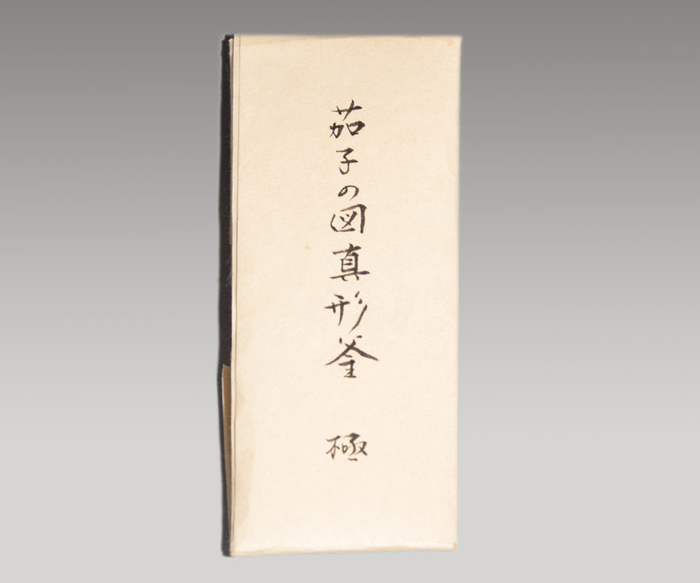 茄子の図真形釜 極